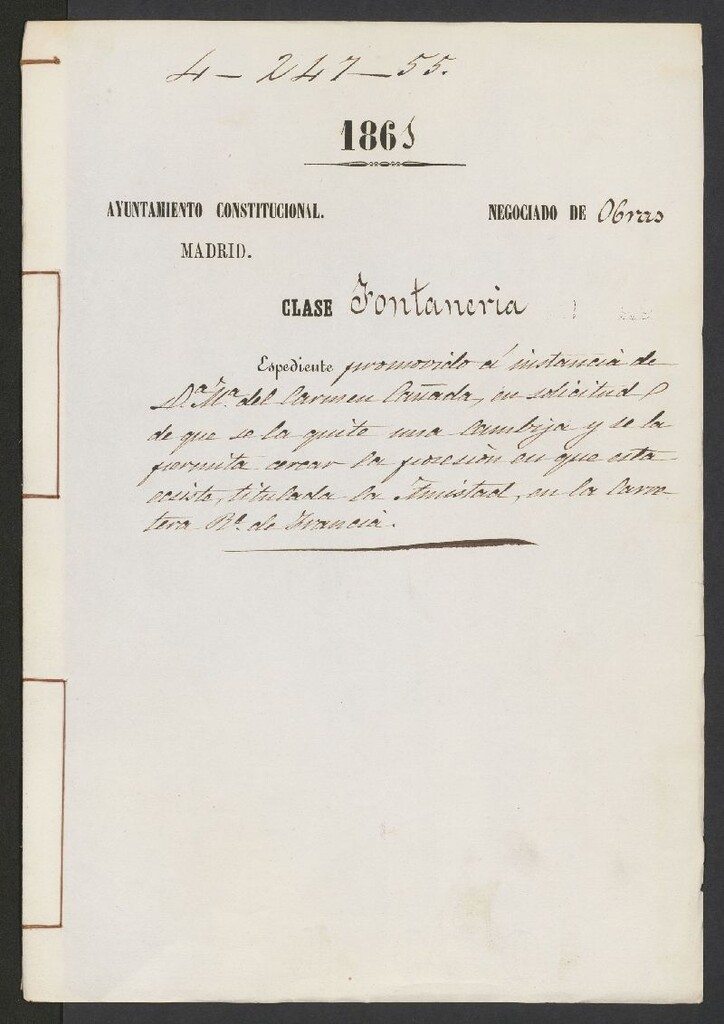 4 - 247 - 55.
1861
AYUNTAMIENTO CONSTITUCIONAL. NEGOCIADO DE Obras
MADRID.
CLASE Fontaneria
Espediente promovido á instancia de
D.ª M.ª del Carmen Cañada, en solicitud
de que se la quite una Cambija y se la
permita cercar la posesión en que esta
ecsiste, titulada la Amistad, en la Carre-
tera Rl. de Francia.